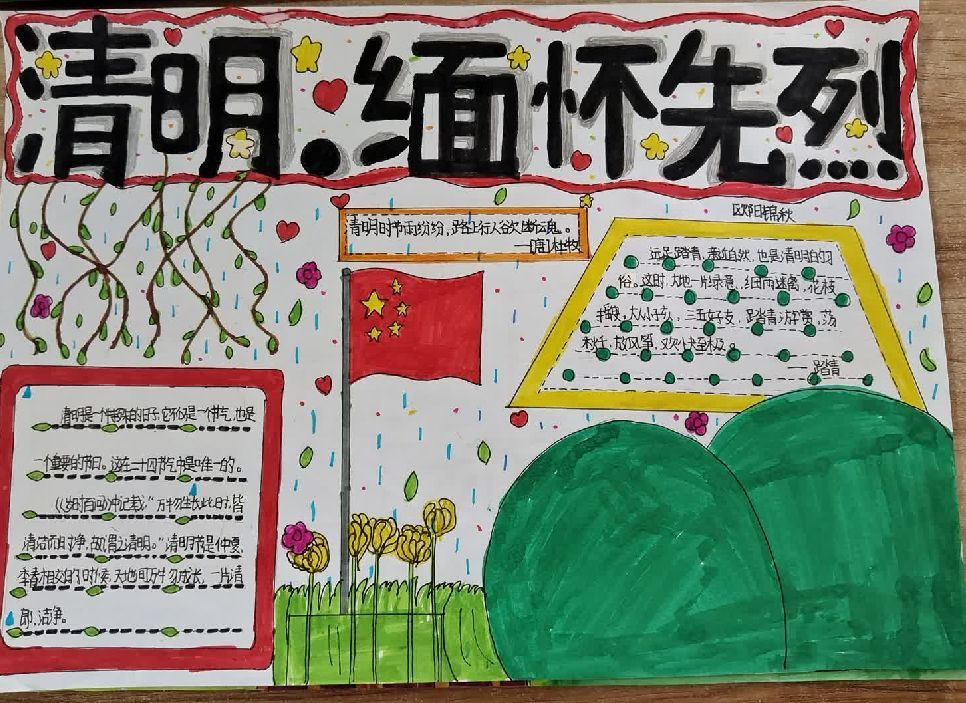 清明.缅怀先烈
清明时节雨纷纷，路上行人欲断魂。
——[唐]杜牧
欧阳锦秋
远足踏青，亲近自然，也是清明节的习
俗。这时，大地一片绿意，细雨迷离，花枝
大人小孩，三五好友，踏青游春，荡
秋千，放风筝，欢快至极。
——踏青
清明是一个特殊的日子，它不仅是一个节气，也是
一个重要的节日。这在二十四节气中是唯一的。
《岁时百问》中记载：“万物生长此时，皆
清洁而明净，故谓之清明。”清明节是仲夏，
季春相交的时候，天地间万物成长，一片清
洁净。